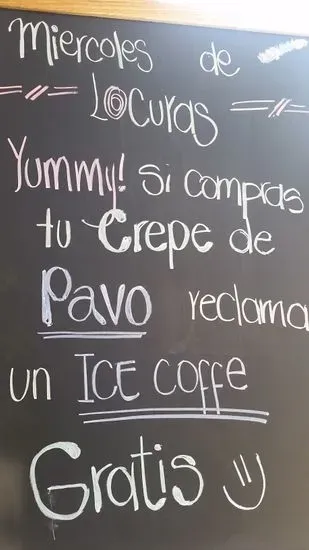 Miercoles de
Locuras
Yummy! si compras
tu Crepe de
Pavo reclama
un ICE coffe
Gratis